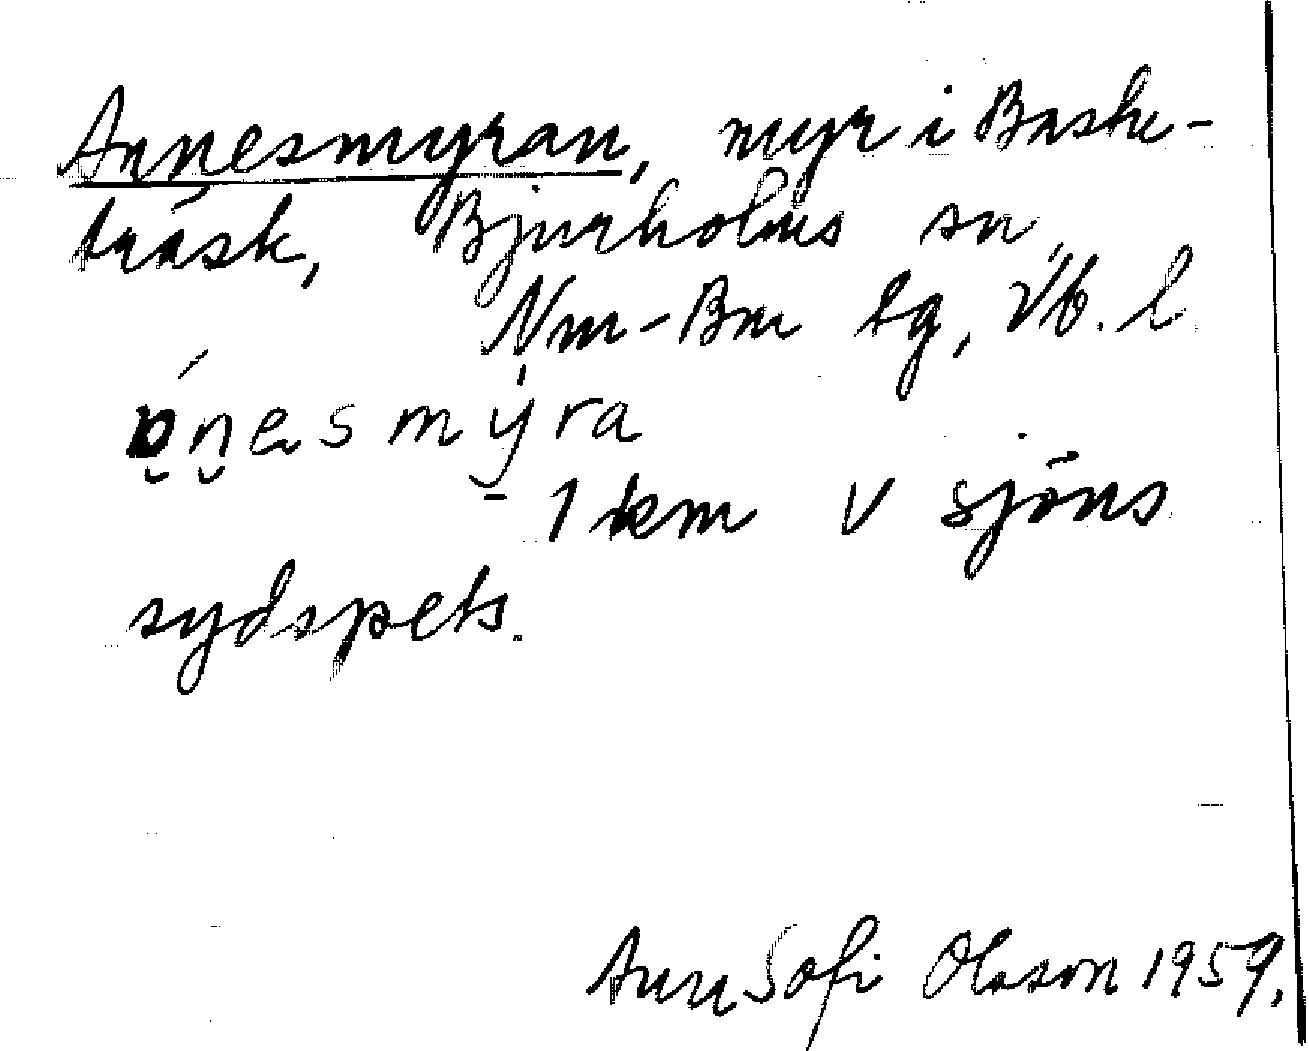 Annesmyran, myr i Baske-
träsk, Bjurholms sn,
Nm-Bm tg, Vb. l
1 km V sjöns
sydspets.
Ann Sofi Olsson 1959.